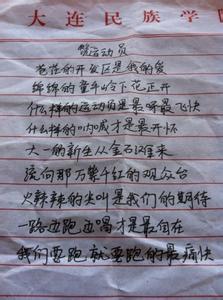 大连民族学
致运动员
苍茫的开发区是我的爱
绵绵的童牛岭下花正开
什么样的运动员是最呀最飞快
什么样的呐喊才是最开怀
大一的新生从金石滩来
流向那万紫千红的观众台
火辣辣的尖叫是我们的期待
一路边跑边唱才是最自在
我们要跑就要跑的最痛快